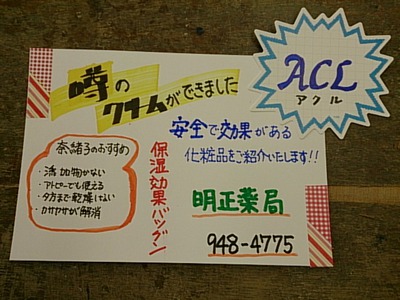 噂の
クリームができました
ACL
アクル
安全で効果がある
化粧品をご紹介いたします!!
奈緒子のおすすめ
・添加物がない
・アトピーでも使える
・夕方まで乾燥しない
・カサカサが解消
保湿効果バツグン
明正薬局
948-4775